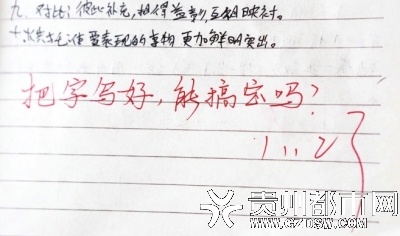 九、对比：彼此补充，相得益彰，互相映衬。
十、衬托：使要表现的事物更加鲜明突出。
把字写好，能搞定吗？
贵州都市网
www.GZDSW.com